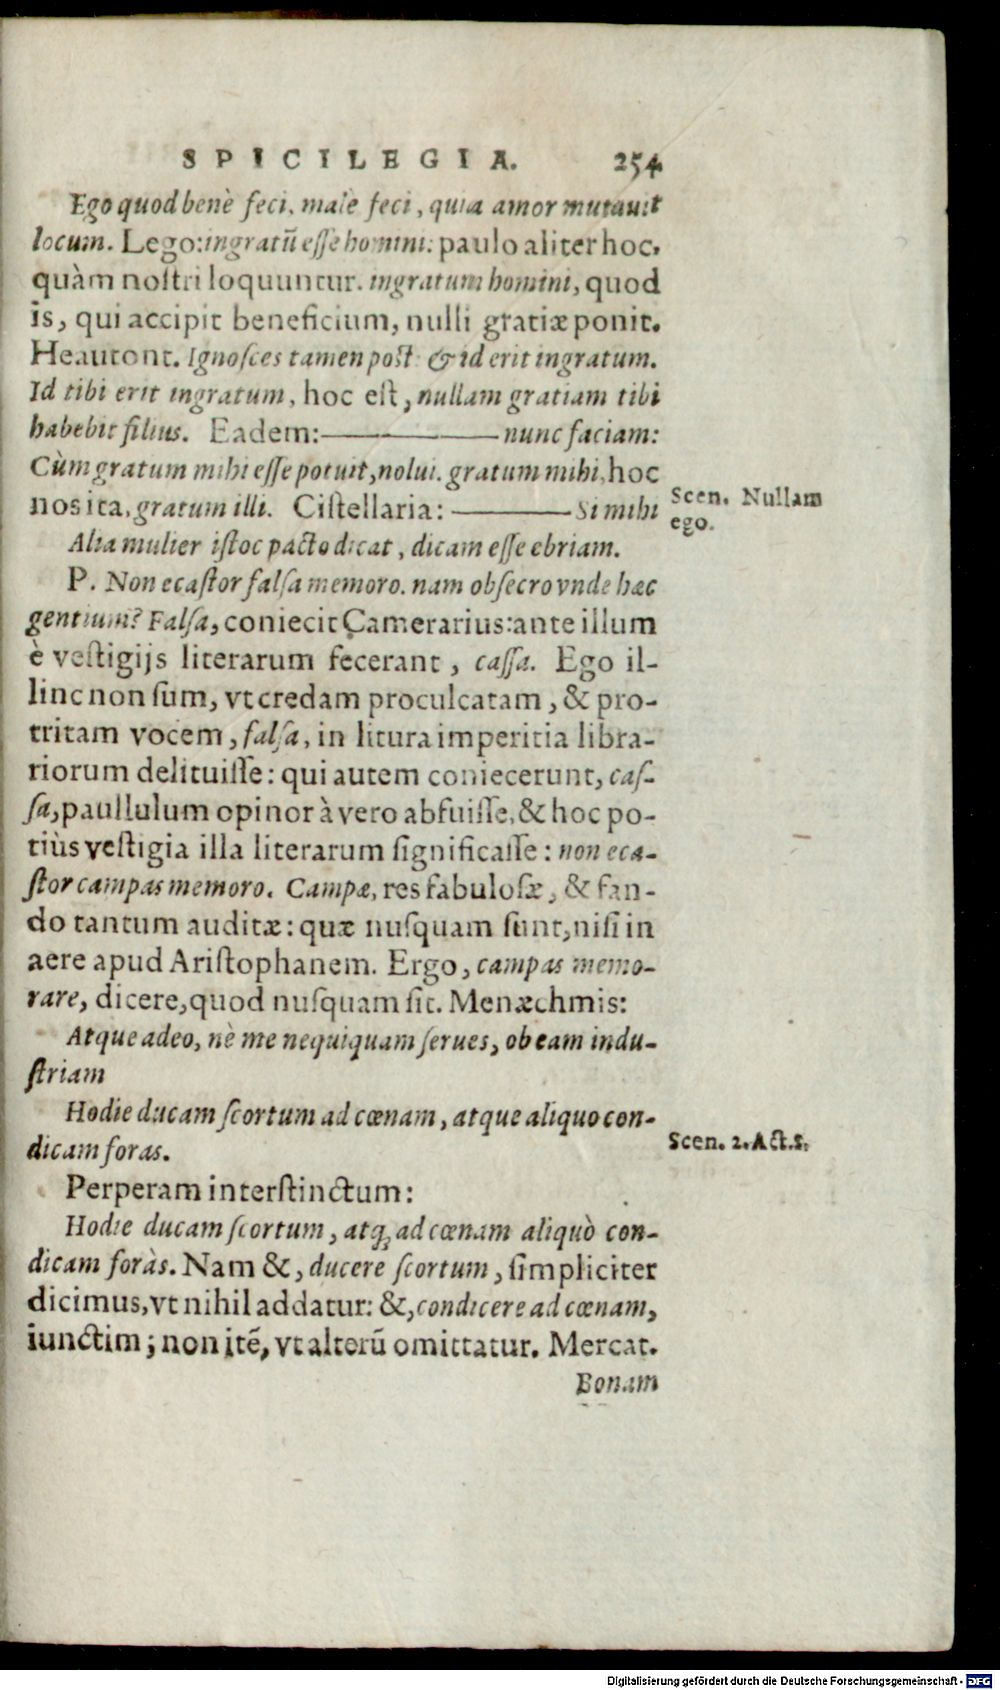 SPICILEGIA. 254
Ego quod benè feci, male feci, quia amor mutauit
locum. Lego: ingratũ esse homini: paulo aliter hoc,
quàm nostri loquuntur. ingratum homini, quod
is, qui accipit beneficium, nulli gratiæ ponit.
Heautont. Ignosces tamen post & id erit ingratum.
Id tibi erit ingratum, hoc est, nullam gratiam tibi
habebit filius. Eadem: ——— nunc faciam:
Cùm gratum mihi esse potuit, nolui. gratum mihi, hoc
nos ita, gratum illi. Cistellaria: ——— Si mihi
Scen. Nullam
ego.
Alia mulier istoc pacto dicat, dicam esse ebriam.
P. Non ecastor falsa memoro. nam obsecro vnde hæc
gentium? Falsa, coniecit Camerarius: ante illum
è vestigijs literarum fecerant, cassa. Ego il-
linc non sum, vt credam proculcatam, & pro-
tritam vocem, falsa, in litura imperitia libra-
riorum delituisse: qui autem coniecerunt, cas-
sa, paullulum opinor à vero abfuisse, & hoc po-
tiùs vestigia illa literarum significasse: non eca-
stor campas memoro. Campæ, res fabulosæ, & fan-
do tantum auditæ: quæ nusquam sunt, nisi in
aere apud Aristophanem. Ergo, campas memo-
rare, dicere, quod nusquam sit. Menæchmis:
Atque adeo, nè me nequiquam serues, ob eam indu-
striam
Hodie ducam scortum ad cœnam, atque aliquo con-
dicam foras.
Scen. 2. Act. 5.
Perperam interstinctum:
Hodie ducam scortum, atq; ad cœnam aliquò con-
dicam foràs. Nam &, ducere scortum, simpliciter
dicimus, vt nihil addatur: &, condicere ad cœnam,
iunctim; non itẽ, vt alterũ omittatur. Mercat.
Bonam
Digitalisierung gefördert durch die Deutsche Forschungsgemeinschaft - DFG